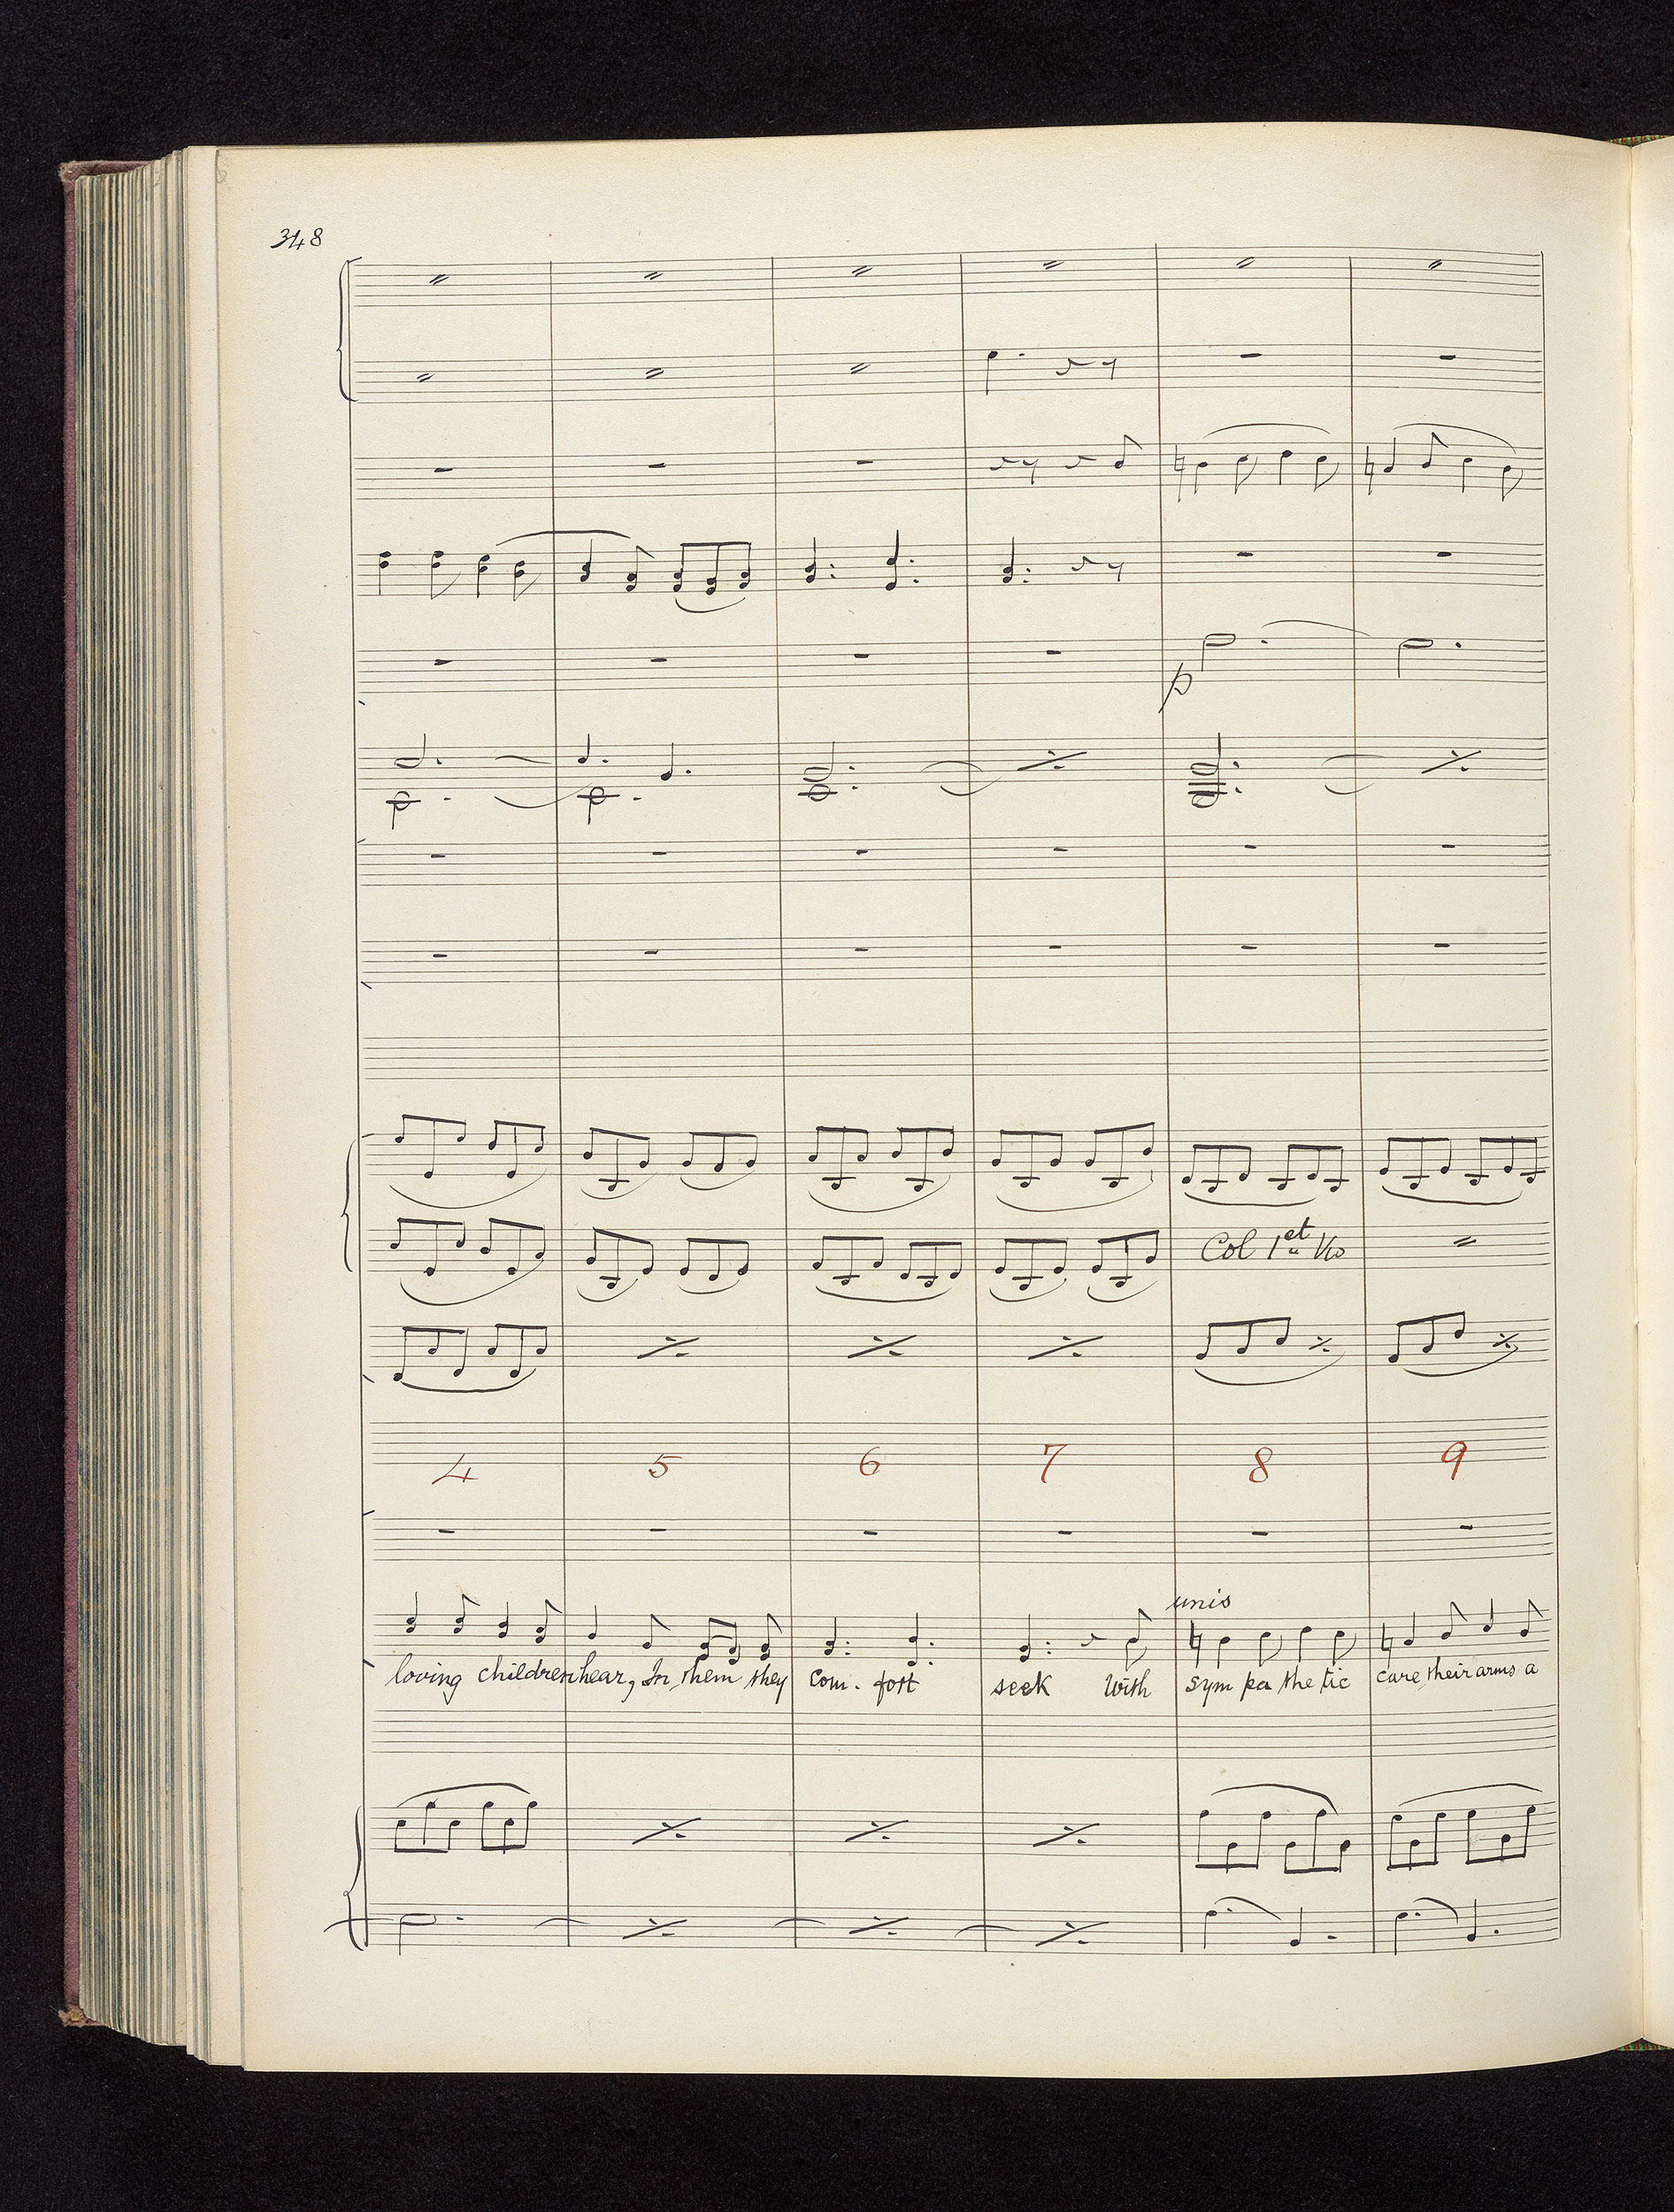 348
p
Col 1et Vio
4 5 6 7 8 9
unis
loving children hear, In them they com. fort seek with sym pa the tic care their arms a